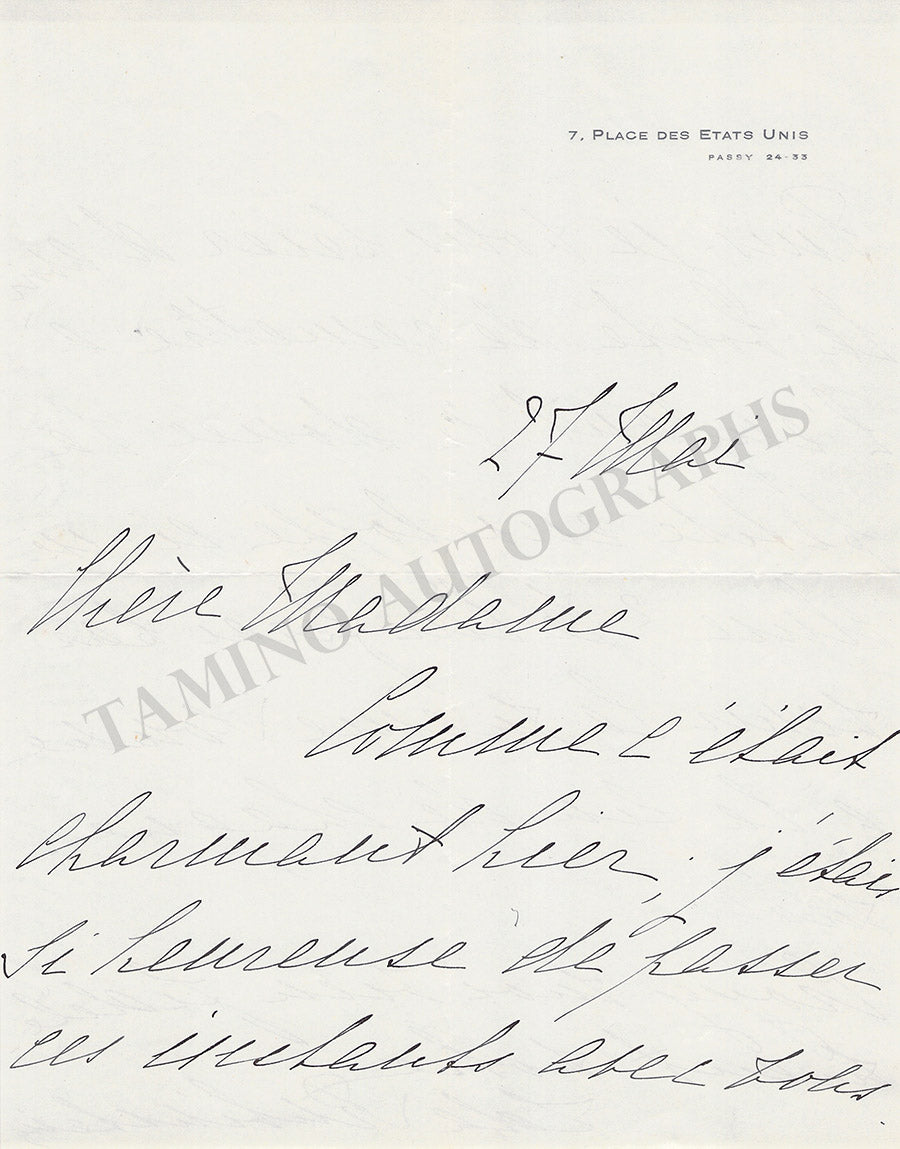 7, PLACE DES ETATS UNIS
PASSY 24-33
27 Mai
Chère Madame
Comme c'était
charmant hier, j'étais
si heureuse de passer
ces instants avec vous.
TAMINO AUTOGRAPHS